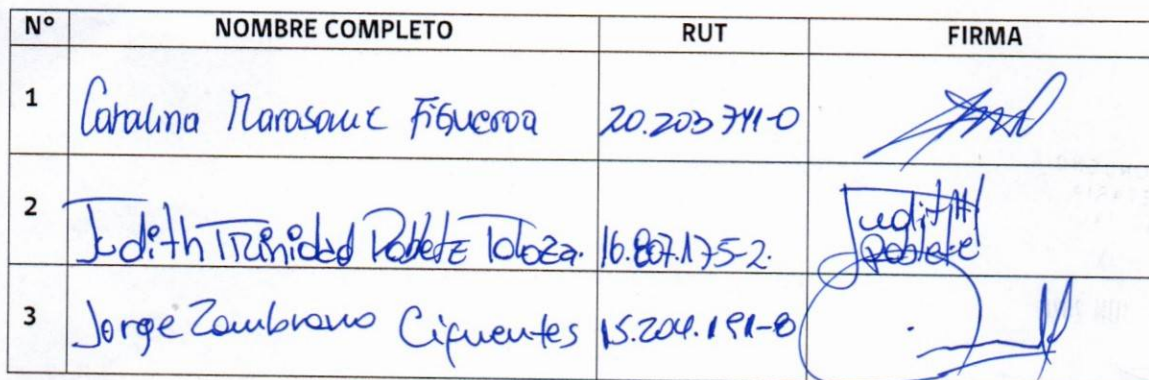 N° NOMBRE COMPLETO RUT FIRMA
1 Catalina Marasauz Figueroa 20.203 741-0
2 Judith Trinidad Poblete Toloza. 16.807.175-2. Judith
Poblete
3 Jorge Zambrano Cifuentes 15.204.191-8